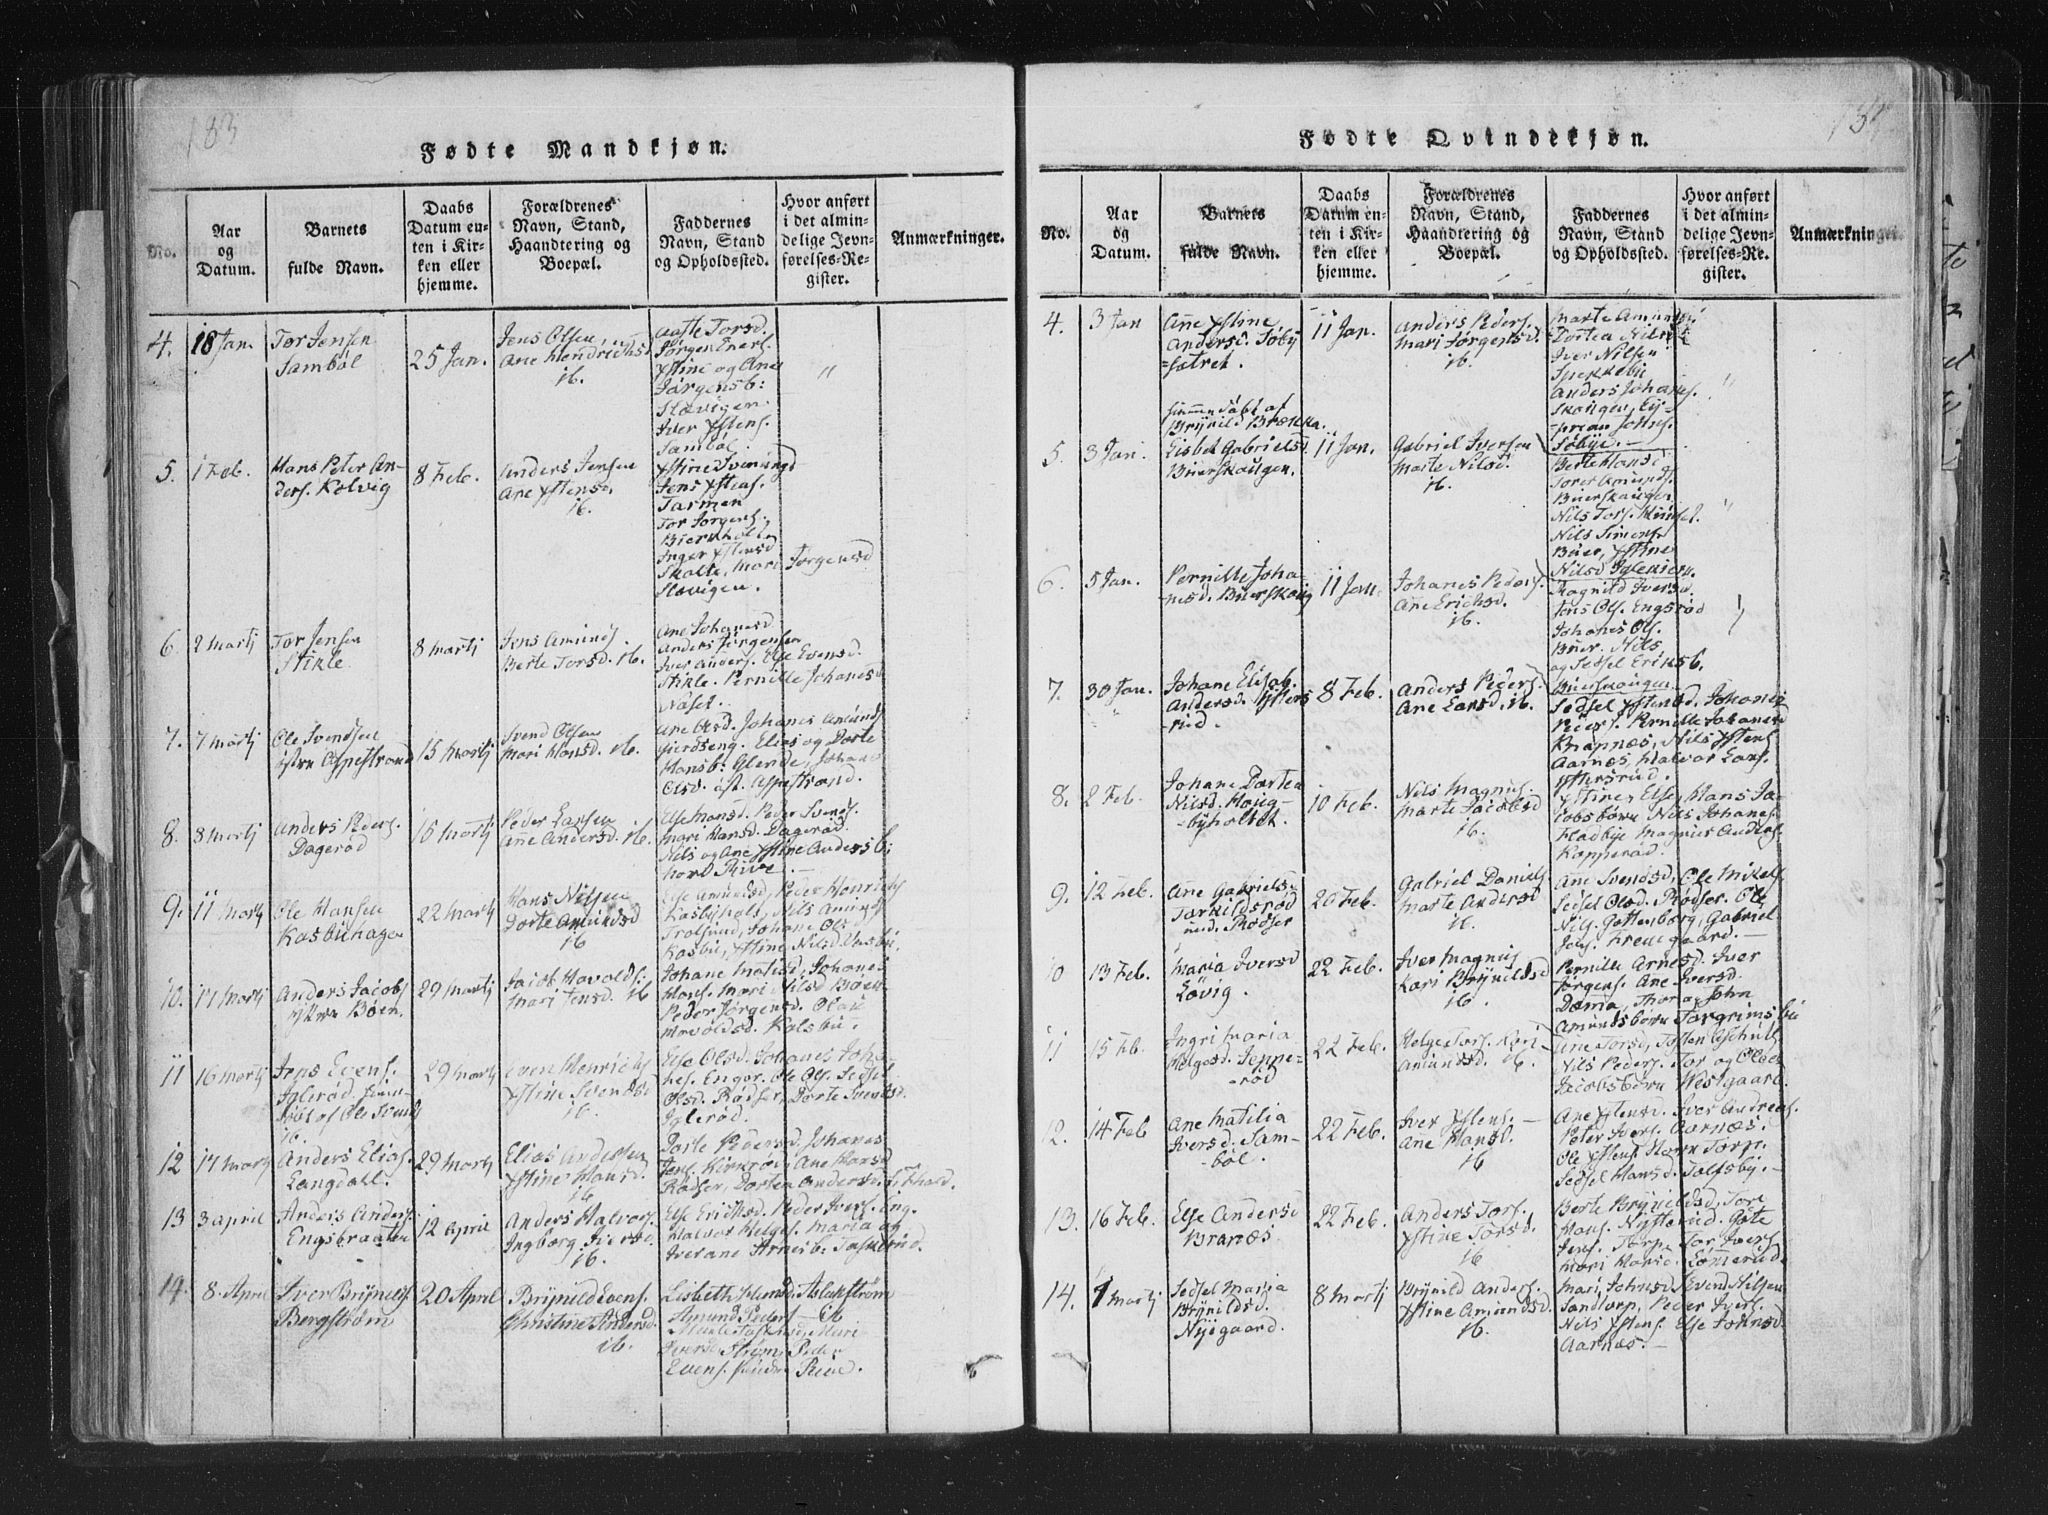 183
Fødte Mandkjøn.
No.
Aar
og
Datum.
Barnets
fulde Navn.
Daabs
Datum en-
ten i Kir-
ken eller
hjemme.
Forældrenes
Navn, Stand,
Haandtering og
Boepæl.
Faddernes
Navn, Stand
og Opholdssted.
Hvor anført
i det almin-
delige Jevn-
førelses-Re-
gister.
Anmærkninger.
4.
18 Jan.
Tor Jensen
Sambøl
25 Jan.
Jens Olsen,
Ane Hendrichsd
ib.
Aaste Torsd.
Jørgen Enerl.
Ystine og Ane
Jørgensb:
Slævigen
Iver Ystens.
Sambøl.
"
5.
1 Feb.
Hans Peter An-
ders. Kolvig
8 Feb.
Anders Jensen
Ane Ystensd.
ib.
Ystine Svenungd
Jens Ystens.
Tarmen
Tor Jorgens.
Bierkhol,
Inger Ystensd
Skolte, Mari Jørgensd
Slævigen.
6.
2 Martj
Tor Jensen
Stikle
8 Martj
Jens Amunds.
Berte Torsd. ib.
Ane Johanesd
Anders Jørgensen
Iver Anders. Else Evensd.
Stikle. Pernille Johanesd
Næset.
7.
7 Martj
Ole Svendsen
østre Appestrand
15 Martj
Svend Olsen
Mari Hansd. ib.
Ane Olsd. Johanes Amunds
Gierdseng. Elias og Dorte
Hansb: Glende, Johane
Olsd. øst. Appestrand.
8.
8 Martj
Anders Peders.
Dagerød
16 Martj
Peder Larsen
Ane Andersd. ib.
Else Hansd. Peder Svends.
Mari Hansd. Dagerød.
Nils og Ane Ystine Andersb:
nord Riive. —
9.
11 Martj
Ole Hansen
Kasbuhagen
22 Martj
Hans Nilsen
Dorte Amundsd
ib
Else Amundsd, Peder Henrichs
Kasbyhols, Nils Amunds
Trolsund, Johane Olsd
Kasbu, Ystine Nilsd Unsbu.
10.
17 Martj
Anders Jacobs
Ystre Bøen.
29 Martj
Jacob Havolds.
Mari Jensd. ib
Johane Matisd, Johanes
Hans. Mari Nilsd Bøen
Peder Jørgensd. Olav
Havoldsd. Kalsbu.
11
16 Martj
Jens Evens.
Iglerød
døbt af Ole Svends
ib.
29 Martj
Even Henrichs
Ystine Svendsd
ib.
Else Olsd. Johanes Joha-
nes. Enger. Ole Ols. Sedsel
Olsd. Rødser, Dorte Svendsd.
Iglerød.
12
17 Martj
Anders Elias.
Langdall.
29 Martj
Elias Andersen
Ystine Hansd.
ib
Dorte Pedersd. Johanes
Jens. Kirkrøv, Ane Hansd
Rødser, Dortea Andersd.
13
3 April
Anders Anders.
Engsbraaten
12 April
Anders Halvors.
Ingborg Iversd.
ib.
Else Erichsd. Peder Ivers. Eng.
Halvor Helges. Maria og
Iverane Arnesb: Tasnerud.
14.
8. April
Iver Brynilds.
Bergstrøm
20 April
Brynild Evens.
Christine Andersd.
ib.
Lisbeth Amund. Aslakstrøm
Amund Peders — ib
Mari
Iversd Strøm, Peder
Evens. søndre Riive.
Fødte Qvindekjøn.
No.
Aar
og
Datum.
Barnets
fulde Navn.
Daabs
Datum en-
ten i Kir-
ken eller
hjemme.
Forældrenes
Navn, Stand,
Haandtering og
Boepæl.
Faddernes
Navn, Stand
og Opholdssted.
Hvor anført
i det almin-
delige Jevn-
førelses-Re-
gister.
Anmærkninger.
4.
3 Jan
Ane Ystine
Andersd. Søby
-sætret.
11 Jan.
Anders Peders.
Mari Jørgensd.
ib.
Marte Amunds.
Dortea Nilsd.
Iver Nilsen
Spekkebu
Anders Johanes.
Skougen, Cy-
prian Johns.
Søbye. —
"
hiemmedøbt af
Brynild Brækka.
5.
3 Jan.
Lisbet Gabrielsd.
Buerskougen.
11 Jan.
Gabriel Iversen
Marte Nilsd.
ib.
Berte Hansd.
Tores Amunds.
Buerskaugen
Nils Tors.
Nils Simens.
Buer, Ystine
Nilsd Iglekiern.
"
6.
5 Jan.
Pernille Joha-
nesd. Buerskoug
11 Jan.
Johanes Peders.
Ane Erichsd.
ib.
Ragnild Iversd.
Jens Ols. Engsrød
Johanes Ols.
Buer. Nils
og Sedsel Eriksb.
Buerskougen
7.
30 Jan.
Johane Elisab.
Andersd. Ysters
rud.
8 Feb.
Anders Peders.
Ane Larsd. ib.
Sedsel Ystensd. Johanes
Peders. Pernille Johanesd
Brapnæs, Nils Ystens
Aarnæs, Halvor Lars.
Ystersrud.
8.
2 Feb.
Johane Dortea
Nilsd. Houg-
-byholtet.
10 Feb.
Nils Magnus.
Marte Jacobsd
ib.
Ystine, Else, Hans Ja-
cobsbørn Nils Johanes.
Fladbye Magnus Gudlefs
Kopperød.
9.
12 Feb.
Ane Gabrielsd
Tarkildsrød
und. Rødser
20 Feb.
Gabriel Daniels
Marte Andersd
ib.
Ane Svendsd, Ole Mikels
Sedsel Olsd. Rødser. Ole
Nils. Gottenborg, Gabriel
Jens. Fredegaard. —
10
13 Feb.
Maria Iversd
Løvig.
22 Feb.
Iver Magnus
Kari Brynildsd
ib.
Pernille Arnesd. Iver
Jørgens. Ane Iversd.
Dæma, Thora, John
Amundsbørn Torgrimsbu
11
15 Feb.
Ingri Maria
Helgesd. Jenne-
-rød
22 Feb.
Helge Tors. Kari
Amundsd. ib.
Ane Torsd, Tosten
Nils Peders. Tor og Oleа
Jacobsbørn Westgaard.
12.
14 Feb
Ane Matilia
Iversd. Sam-
-bøl.
22 Feb.
Iver Ystens. —
Ane Hansd.
ib
Ane Ystensd. Iver Andreas.
Peter Ivers. Aarnæs.
Ole Ystens. Torp.
Sedsel Hansd. Tolfsby. —
13.
16 Feb.
Else Andersd
Branæs
22 Feb.
Anders Tors.
Ystine Torsd.
ib
Berte Brynildsd, Tore
Hans. Nysterud. Gøte
Jens. Torp, Tor Ivers
Mari Hansd. Lømmerud.
14.
1 Martj
Sedsel Maria
Brynildsd.
Nyegaard.
8 Martj
Brynild Anders.
Ystine Amundsd.
ib.
Mari Johnsd Svend Nilsen
Sandtorp, Peder Ivers.
Nils Ystens. Else Johnsd.
Aarnæs. —